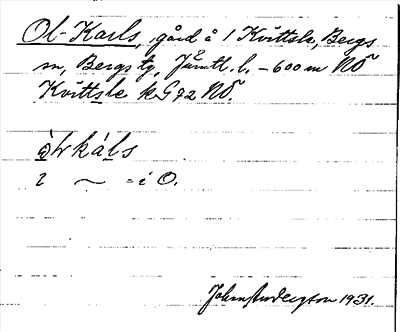 Ol-Karls, gård å 1 Kvittsle, Bergs
sn, Bergs tg, Jämtl. l. – 600 m NÖ
Kvittsle kG 92 NÖ.
kàls
i ~ = i O.
John Anderzon 1931.